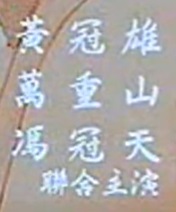 黃冠雄
萬重山
馮冠天
聯合主演